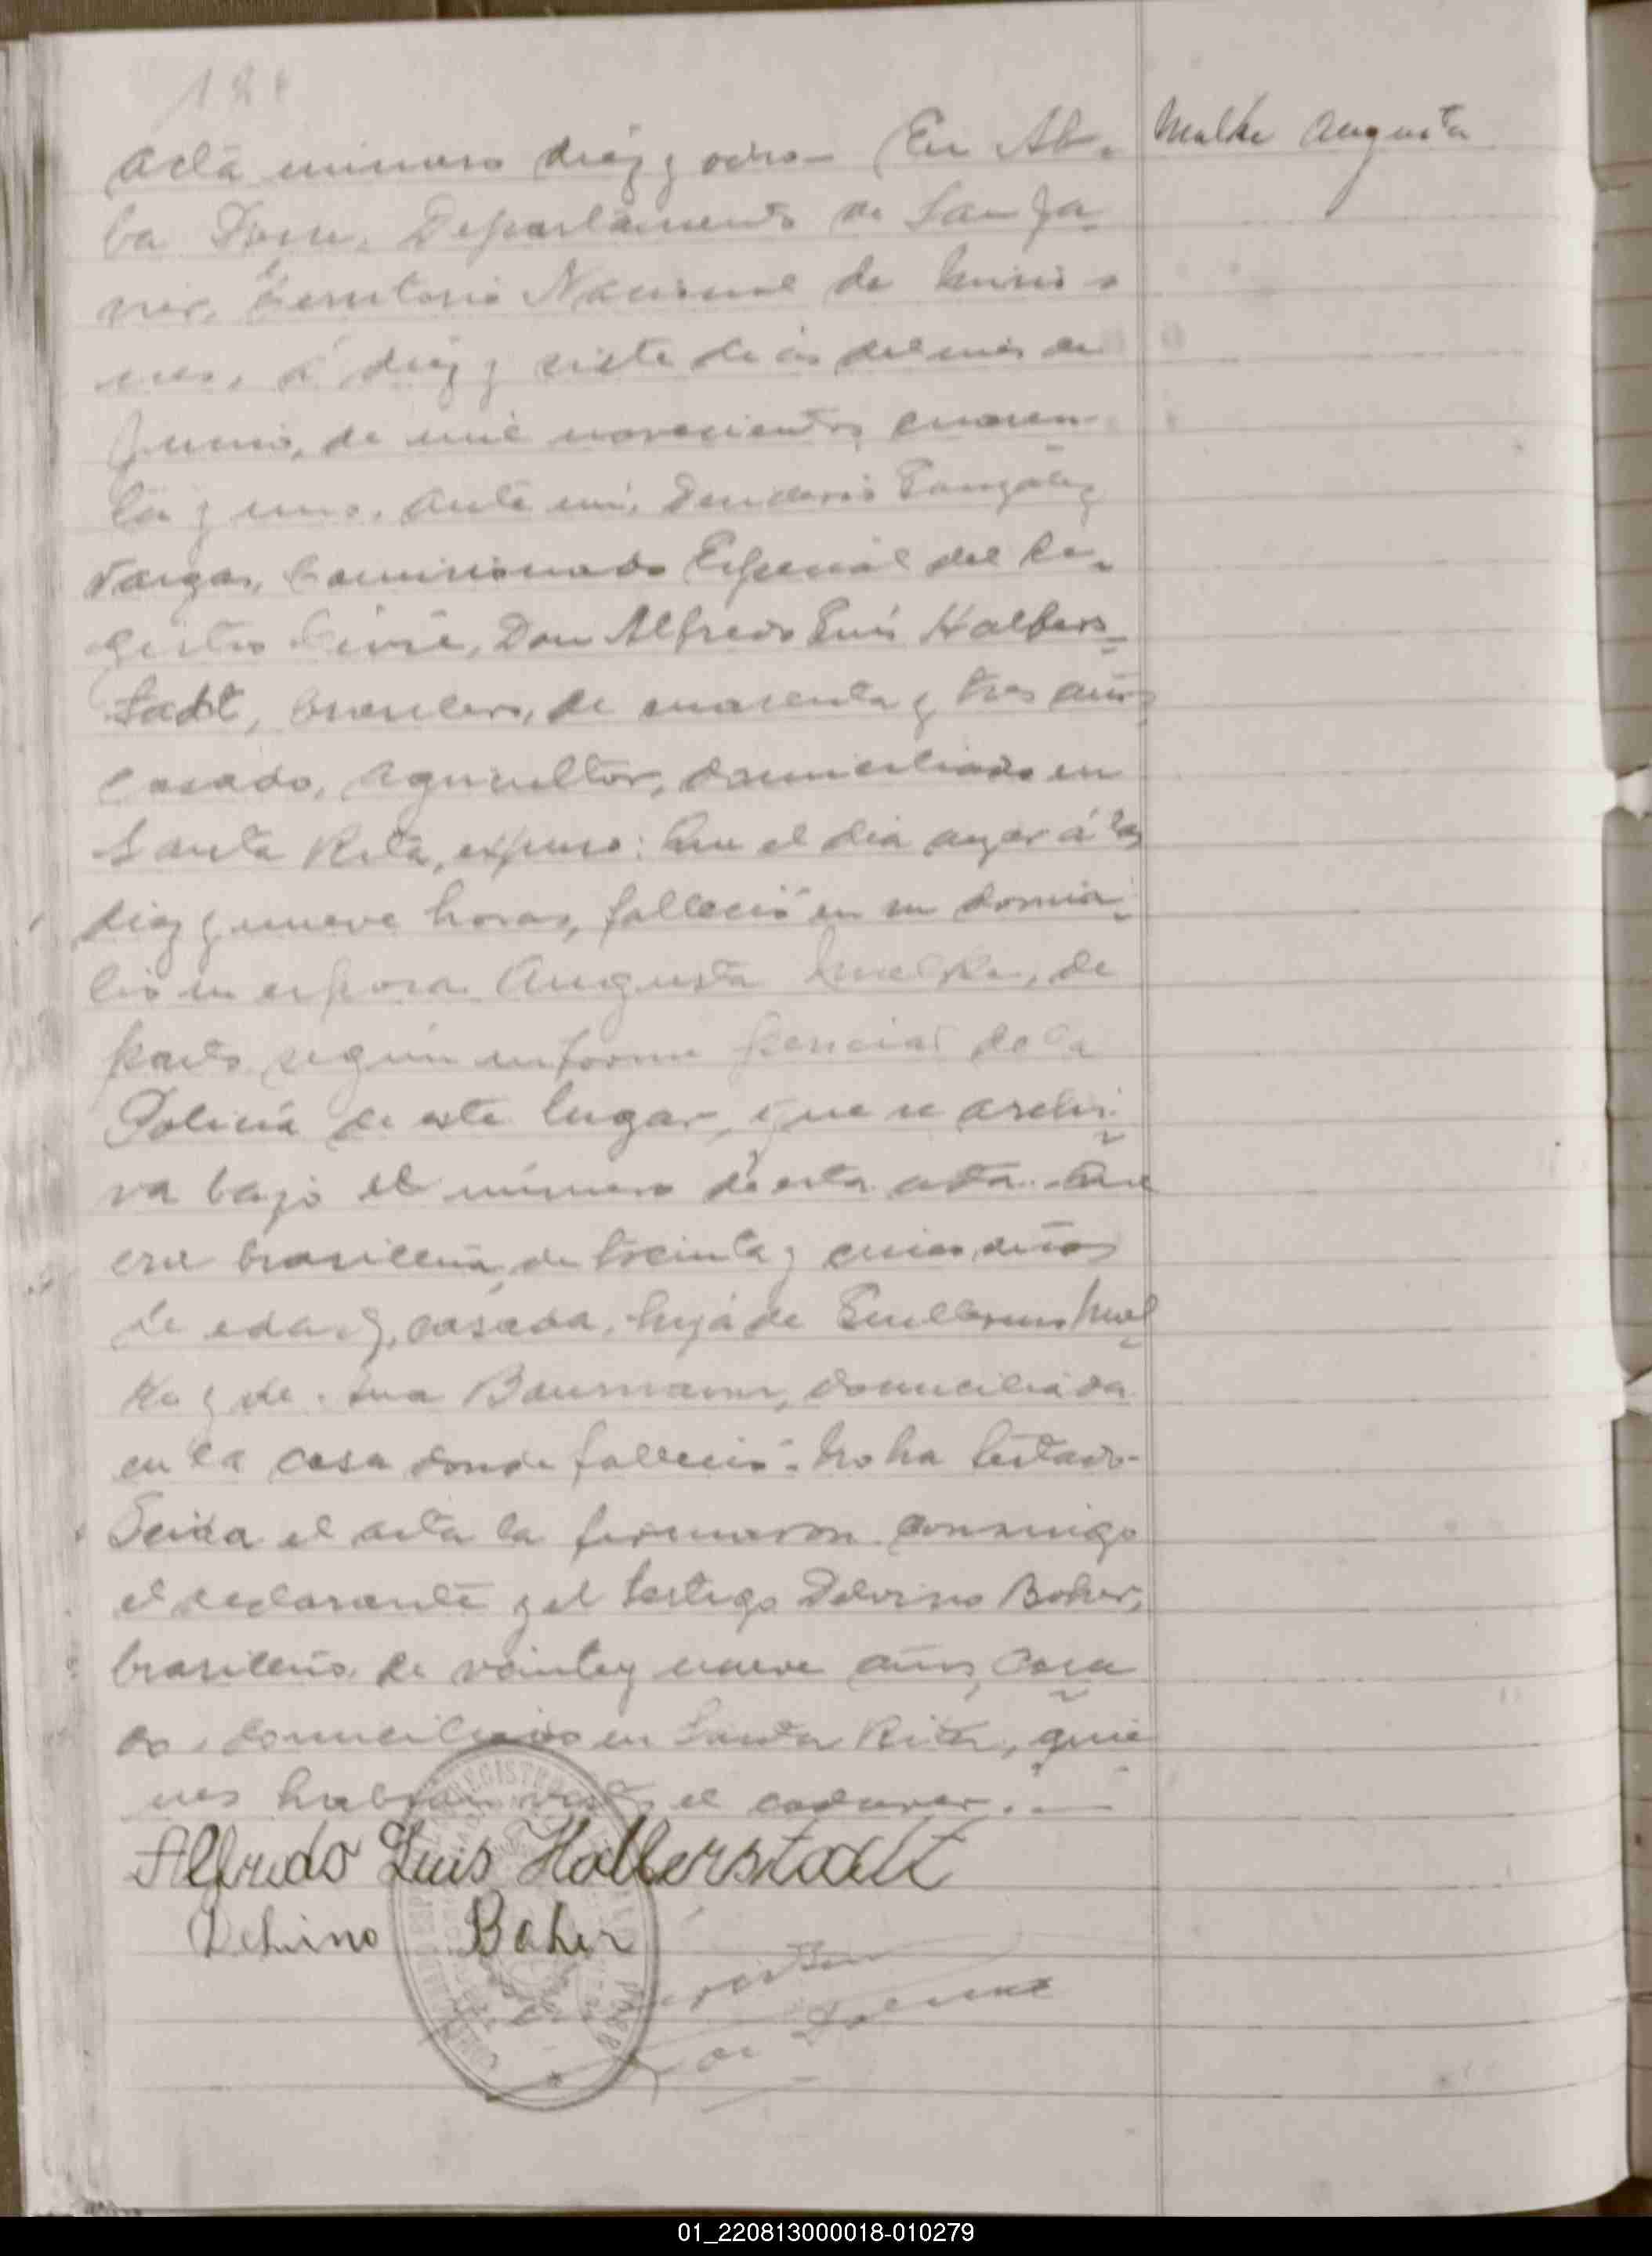 Acta número diez y ocho— En Al-
Malke Augusta
ba Posse, Departamento de San Ja-
vier, Territorio Nacional de Misio-
nes, á diez y siete días del mes de
Junio, de mil novecientos cuaren-
ta y uno, ante mí, González
Vargas, Comisionado Especial del Re-
gistro Civil, Don Alfredo Luis Halbers-
tadt, brasilero, de cuarenta y tres años
casado, agricultor, domiciliado en
Santa Rita, expuso: Que el día ayer á las
diez y nueve horas, falleció en su domici-
lio su esposa Augusta Malke, de
parto según informe pericial de la
Policía de este lugar, que se archi-
va bajo el número de esta acta. Que
era brasileña, de treinta y cinco años
de edad, casada, hija de Guillermo Mal-
ke y de Ana Baumann, domiciliada
en la casa donde falleció. No ha testado-
Leida el acta la firmaron conmigo
el declarante y el testigo Delvino Boher,
brasileño, de veinte y nueve años, casa-
do, domiciliado en Santa Rita, quie-
nes habían visto el cadaver.—
Alfredo Luis Halberstadt
Delvino Boher
01_220813000018-010279